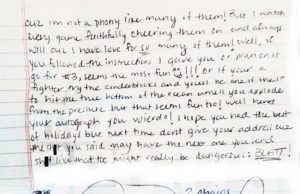 cuz im not a phony like many of them! But I watch
every game faithfully cheering them on and always
will cuz I have love for so many of them! well, if
you followed the instructions I gave you or plan on it
go for #3, seems the most fun !!! or if your a
fighter try the cinderblocks and youll be one of the 1st
to hit the true bottom of the ocean unless you explode
from the pressure but that seems fun too! well heres
your autograph you wierdo! I hope you had the best
of holidays but next time dont give your address cuz
the you said may have the next one you send
too might really be dangerous: